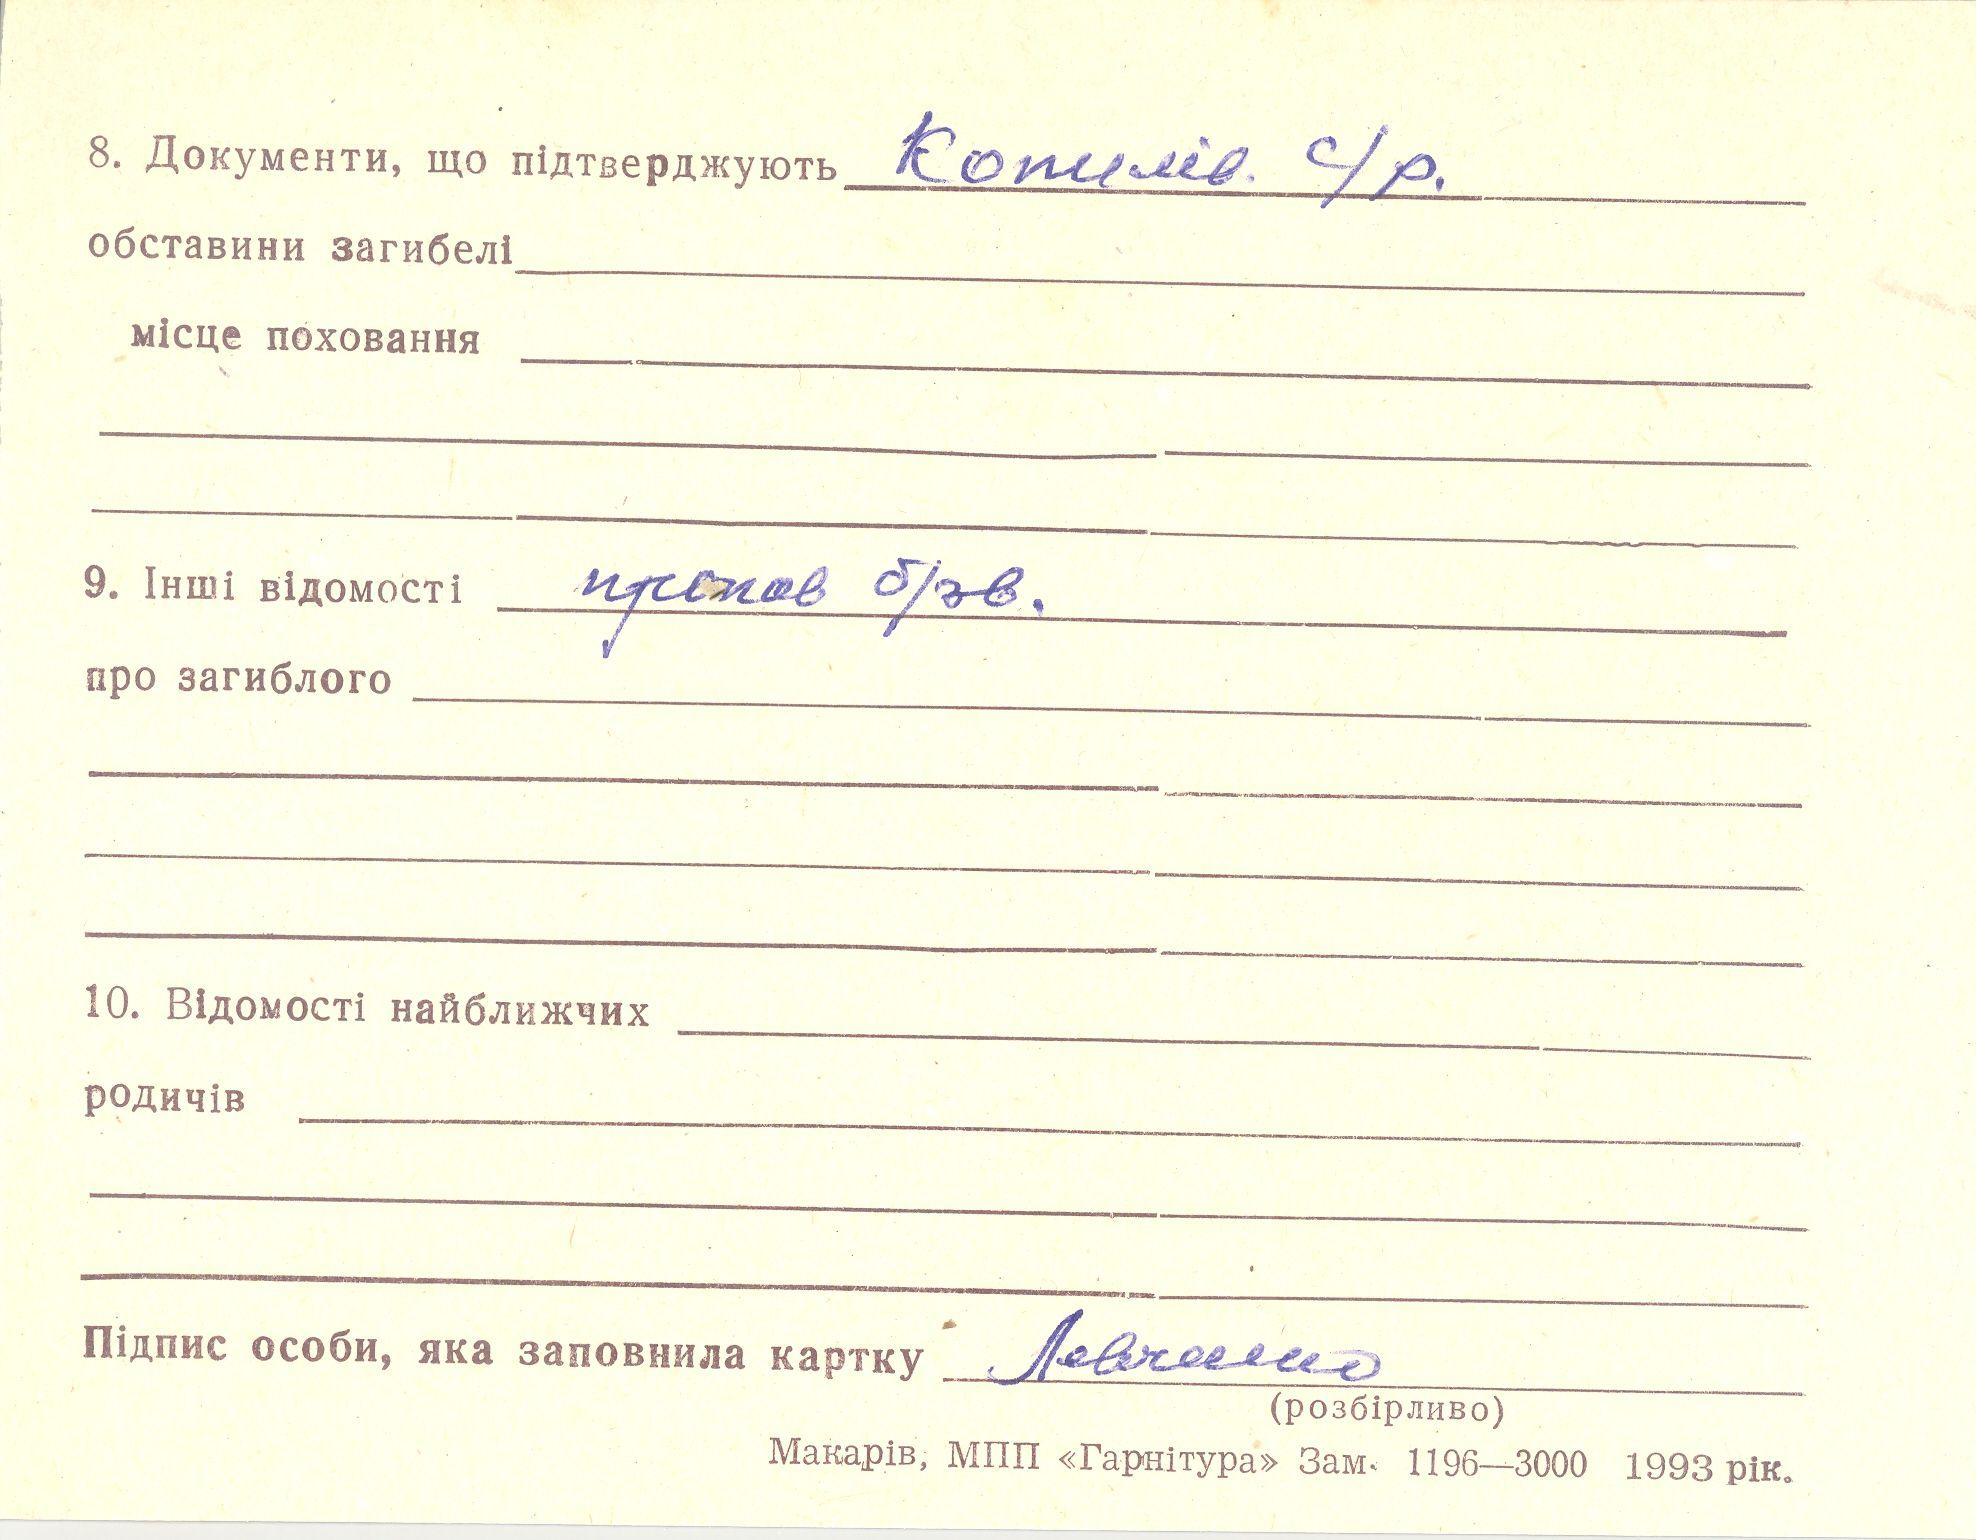 8. Документи, що підтверджують Копилів. с/р.
обставини загибелі
місце поховання
9. Інші відомості пропав б/зв.
про загиблого
10. Відомості найближчих
родичів
Підпис особи, яка заповнила картку
(розбірливо)
Макарів, МПП «Гарнітура» Зам. 1196—3000 1993 рік.